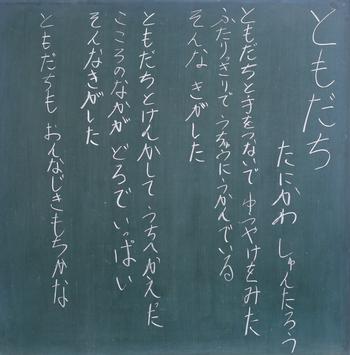 ともだち
たにかわ しゅんたろう
ともだちと手をつないで ゆうやけをみた
ふたりっきりで うちゅうにうかんでいる
そんな きがした
ともだちとけんかして うちへかえった
こころのなかが どろで いっぱい
そんなきがした
ともだちも おんなじきもちかな